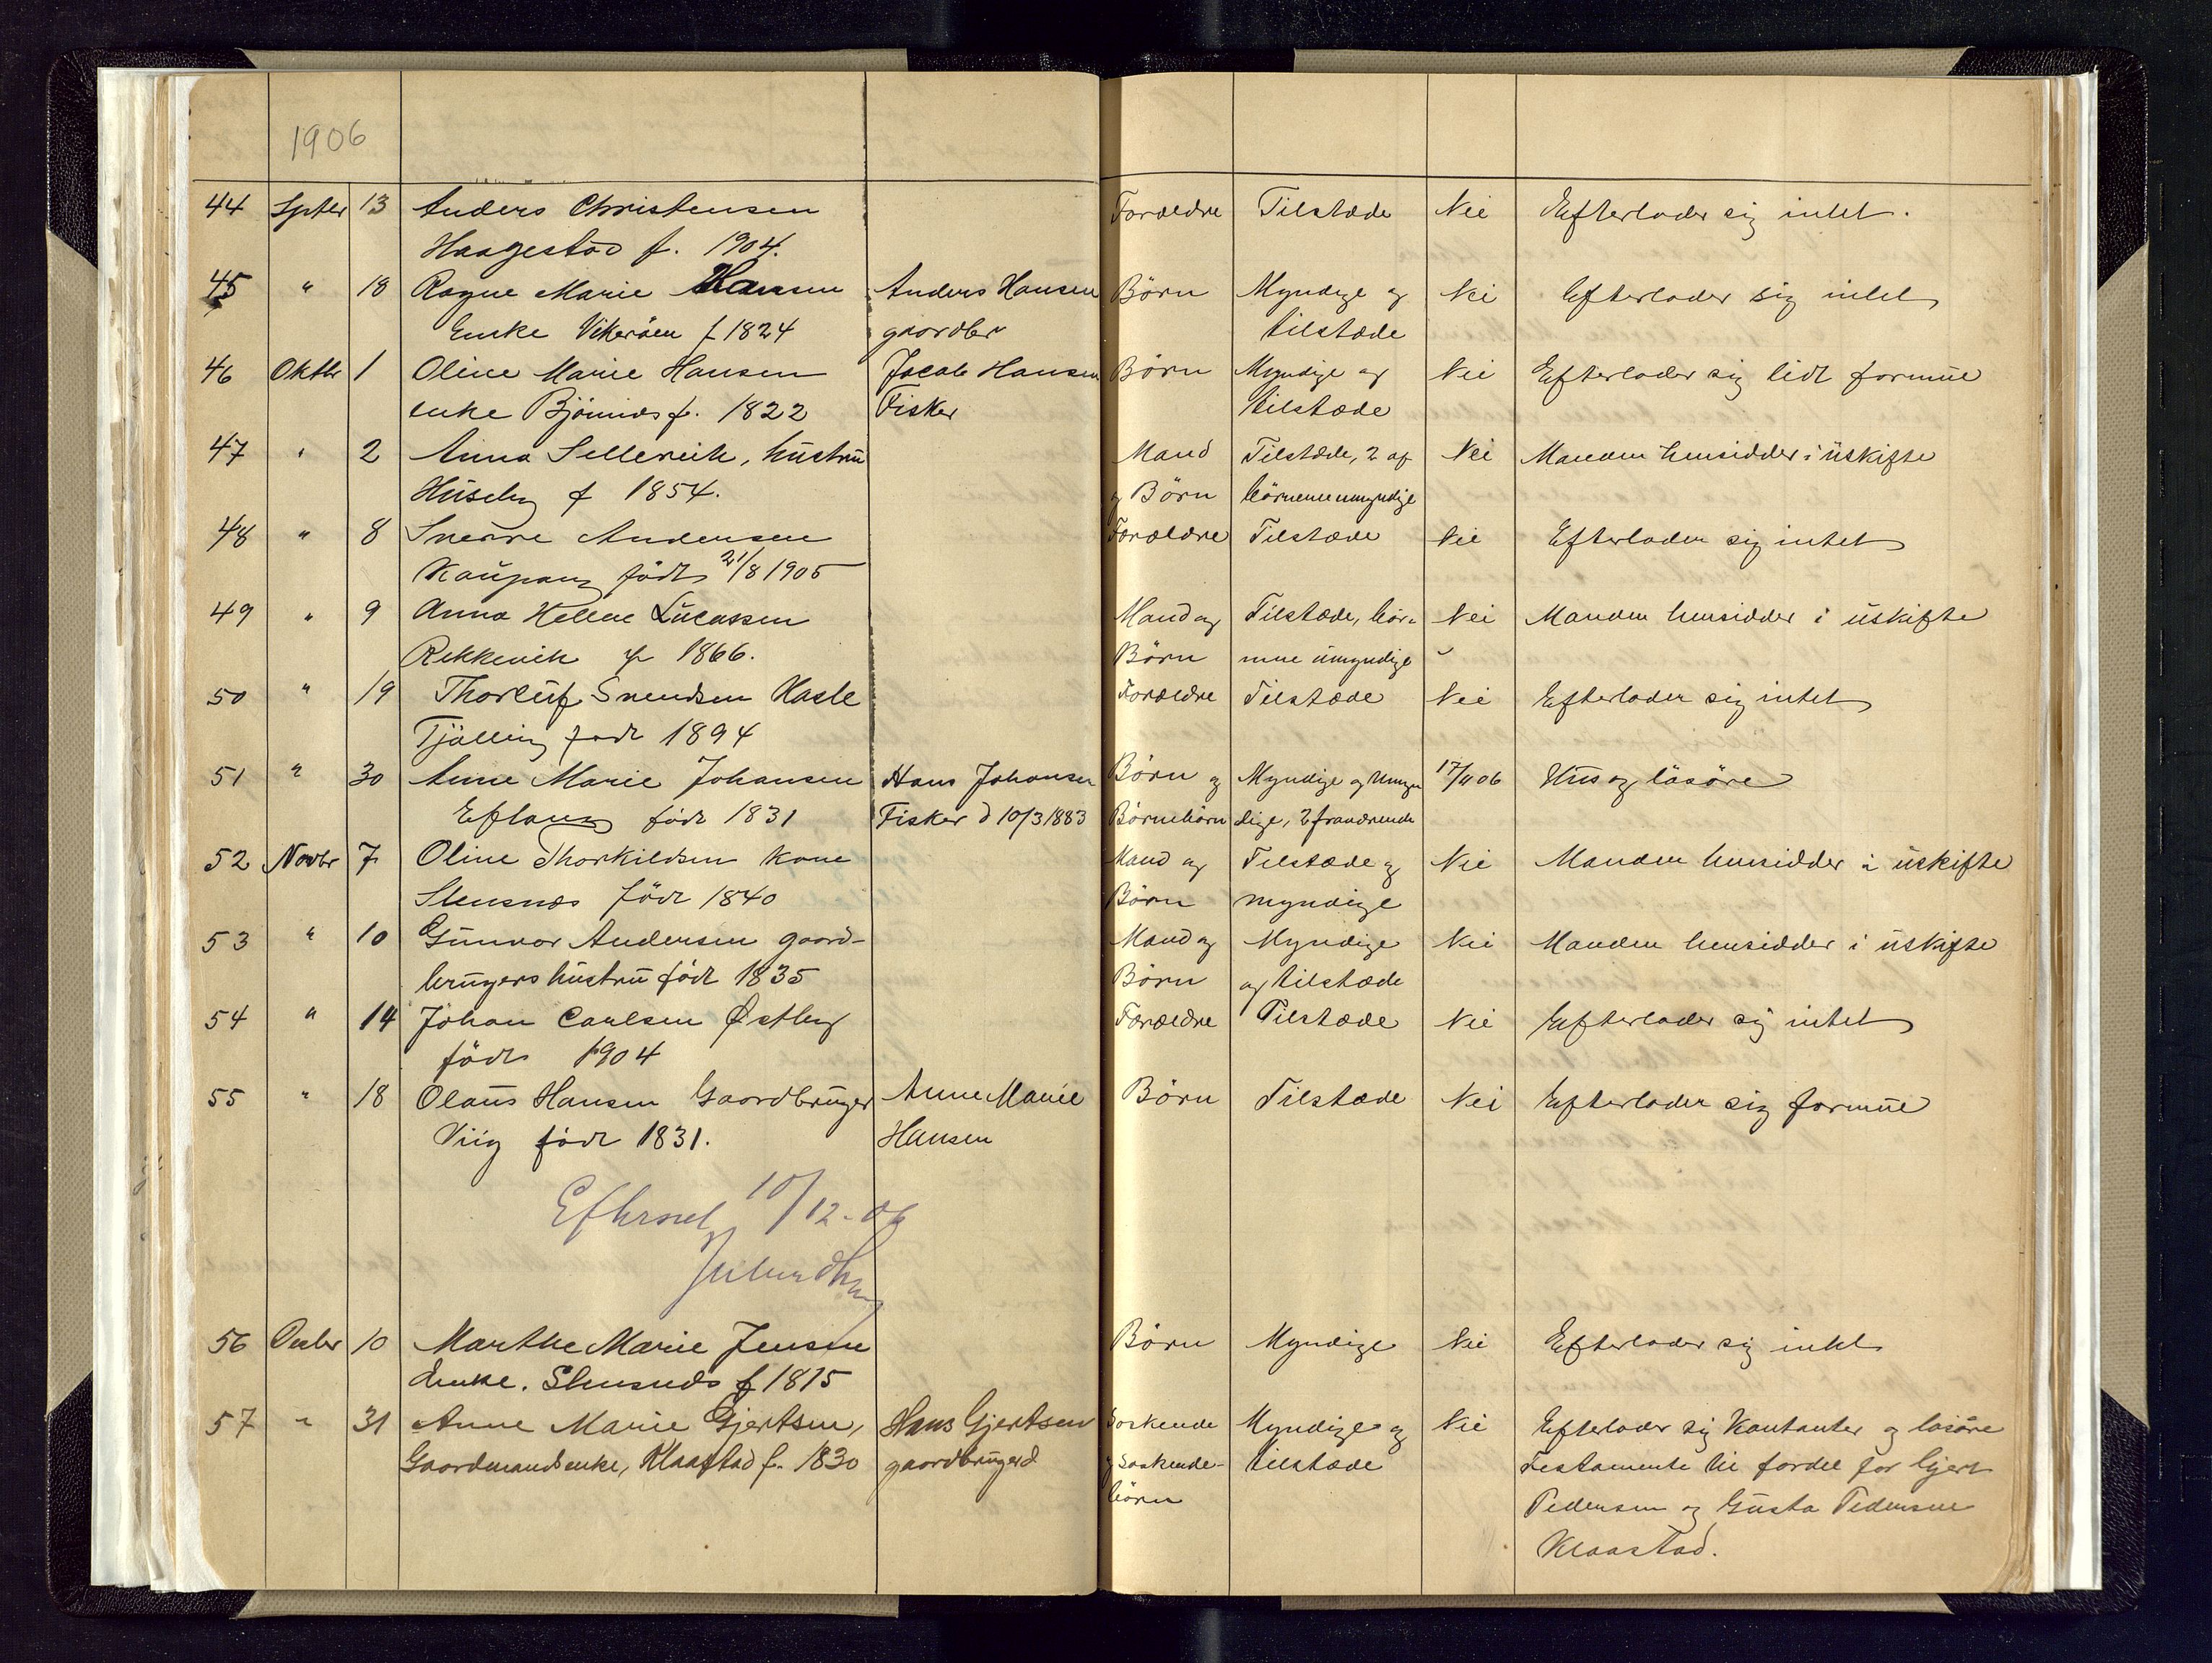 1906
44 Sptbr 13 Anders Christensen Forældre Tilstæde Nei Efterlader sig intet.
Haagestad f. 1904.
45 " 18 Ragne Marie Hansen Anders Hansen Børn Myndige og Nei Efterlader sig intet
Enke Vikerøen f 1824 gaardbr tilstæde
46 Oktbr 1 Oline Marie Hansen Jacob Hansen Børn Myndige og Nei Efterlader sig lidt formue
enke Bjönnes f. 1822 Fisker tilstæde
47 " 2 Anna Sellevik, hustru Mand Tilstæde, 2 af Nei Manden hensidder i uskifte
Huseby f 1854. og Børn börnene umyndige
48 " 8 Sverre Andersen Forældre Tilstæde Nei Efterlader sig intet
Kaupang födt 21/8 1905
49 " 9 Anna Helene Lucassen Mand og Tilstæde, bör- Nei Manden hensidder i uskifte
Rekkevik f 1866. Børn nene umyndige "
50 " 19 Thorleif Svendsen Hasle Forældre Tilstæde Nei Efterlader sig intet
Tjölling födt 1894
51 " 30 Anne Marie Johansen Hans Johansen Børn og Myndige og umyn 17/11 06 Hus og lösöre
Eftang födt 1831 Fisker d 10/3 1883 Børnebörn dige, 2 fraværende
52 Novbr 7 Oline Thorkildsen kone Mand og Tilstæde og Nei Manden hensidder i uskifte
Stensnes födt 1840 Børn myndige
53 " 10 Gunvor Andersen gaard- Mand og Myndige Nei Manden hensidder i uskifte
brugers hustru födt 1835 Børn og tilstæde
54 " 14 Johan Carlsen Østby Forældre Tilstæde Nei Efterlader sig intet
födt 1904
55 " 18 Olaus Hansen Gaardbruger Anne Marie Børn Tilstæde Nei Efterlader sig formue
Viig födt 1831. Hansen
Efterset 10/12-06
56 Decbr 10 Marthe Marie Jensen Børn Myndige Nei Efterlader sig intet
enke. Stensnes f 1815
57 " 31 Anne Marie Gjertsen, Hans Gjertsen Søskende Myndige og Nei Efterlader sig Kontanter og løsöre
Gaardmandsenke, Klaastad f. 1830 gaardbruger d og Søskende- tilstæde Testamente til fordel for Gjert
börn Pedersen og Gusta Pedersen
Klaastad.